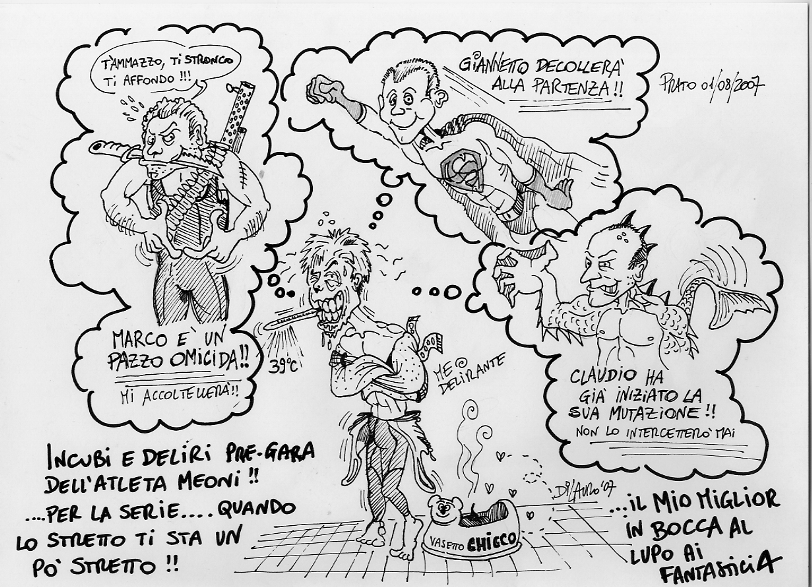 T'AMMAZZO, TI STRONCO
TI AFFONDO !!!
MARCO E' UN
PAZZO OMICIDA!!
MI ACCOLTELLERA'!!
GIANNETTO DECOLLERA'
ALLA PARTENZA!!
PRATO 01/08/2007
S
CLAUDIO HA
GIA' INIZIATO LA
SUA MUTAZIONE!!
NON LO INTERCETTERO' MAI
39°C
MEO
DELIRANTE
INCUBI E DELIRI PRE-GARA
DELL'ATLETA MEONI !!
....PER LA SERIE.... QUANDO
LO STRETTO TI STA UN
PO' STRETTO !!
VASETTO CHICCO
DI LAURO '07
...IL MIO MIGLIOR
IN BOCCA AL
LUPO AI
FANTASTICI 4